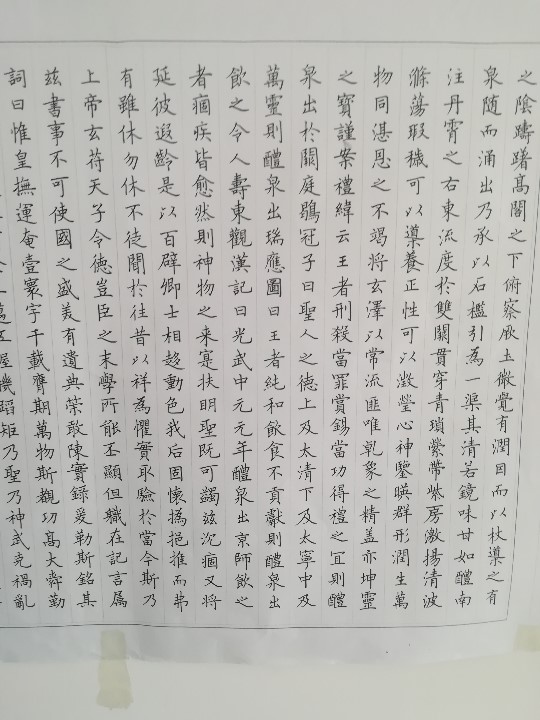 之陰躊躇高閣之下俯察厥土微覺有潤因而以杖導之有
泉随而涌出乃承以石檻引為一渠其清若鏡味甘如醴南
注丹霄之右東流度於雙闕貫穿青瑣縈帶紫房激揚清波
滌蕩瑕穢可以導養正性可以澂瑩心神鑒暎群形潤生萬
物同湛恩之不竭将玄澤以常流匪唯乾象之精盖亦坤靈
之寶謹案禮緯云王者刑殺當罪賞錫當功得禮之宜則醴
泉出於闕庭鶡冠子曰聖人之徳上及太清下及太寧中及
萬靈則醴泉出瑞應圖曰王者純和飲食不貢獻則醴泉出
飲之令人壽東觀漢記曰光武中元元年醴泉出京師飲之
者痼疾皆愈然則神物之来寔扶明聖既可蠲兹沉痼又将
延彼遐齡是以百辟卿士相趍動色我后固懷撝挹推而弗
有雖休勿休不徒聞於往昔以祥為懼實取驗於當今斯乃
上帝玄苻天子令徳豈臣之末學所能丕顯但職在記言属
兹書事不可使國之盛美有遺典策敢陳實錄爰勒斯銘其
詞曰惟皇撫運奄壹寰宇千載膺期萬物斯覩功高大舜勤
萬 五 握機蹈矩乃聖乃神武克禍亂